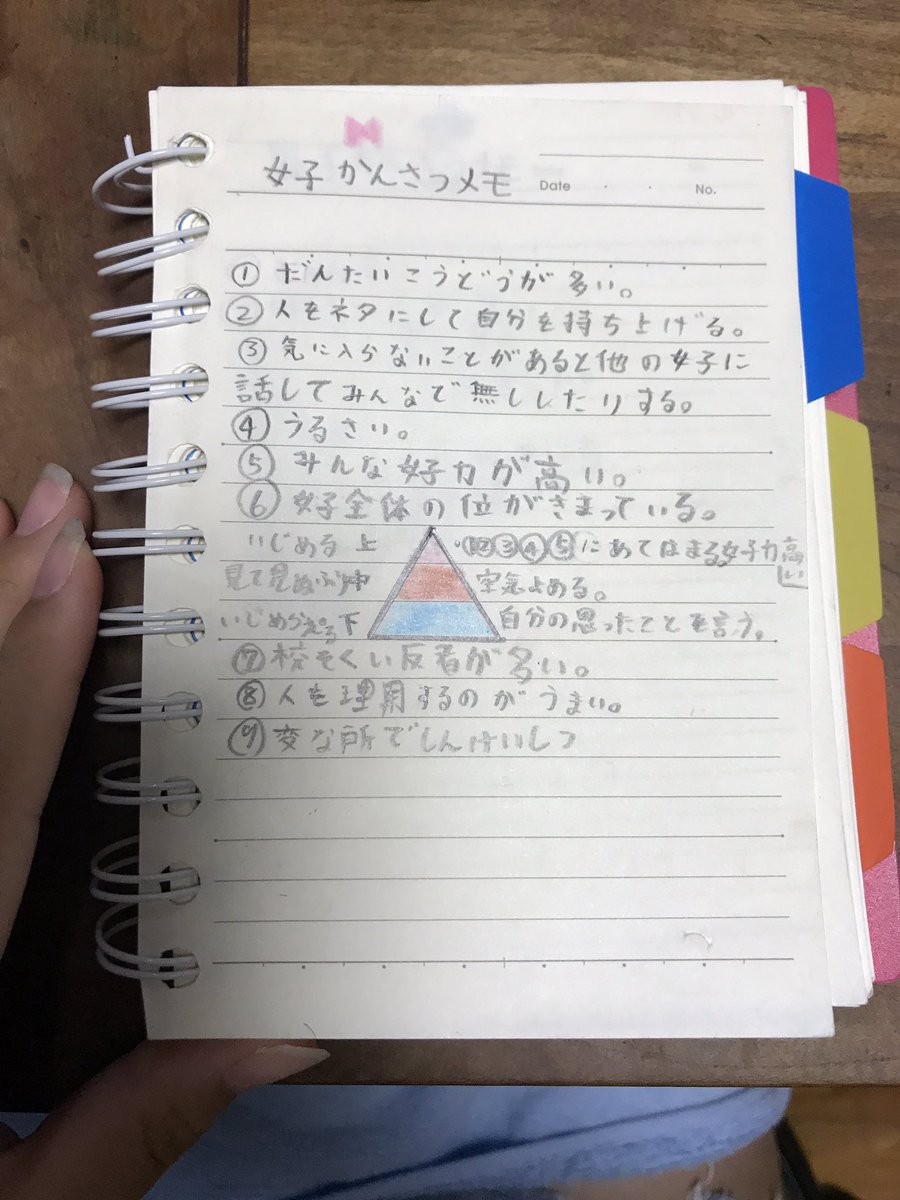 女子かんさつメモ
Date ・ ・ No.
① だんたいこうどうが多い。
② 人をネタにして自分を持ち上げる。
③ 気に入らないことがあると他の女子に
話してみんなで無ししたりする。
④ うるさい。
⑤ みんな女子力が高い。
⑥ 女子全体の位がきまっている。
いじめる 上 ・①②③④⑤にあてはまる女子力高い
見て見ぬふり中 空気よめる。
いじめられる下 自分の思ったことを言う。
⑦ 校そくい反者が多い。
⑧ 人を理用するのがうまい。
⑨ 変な所でしんけいしつ